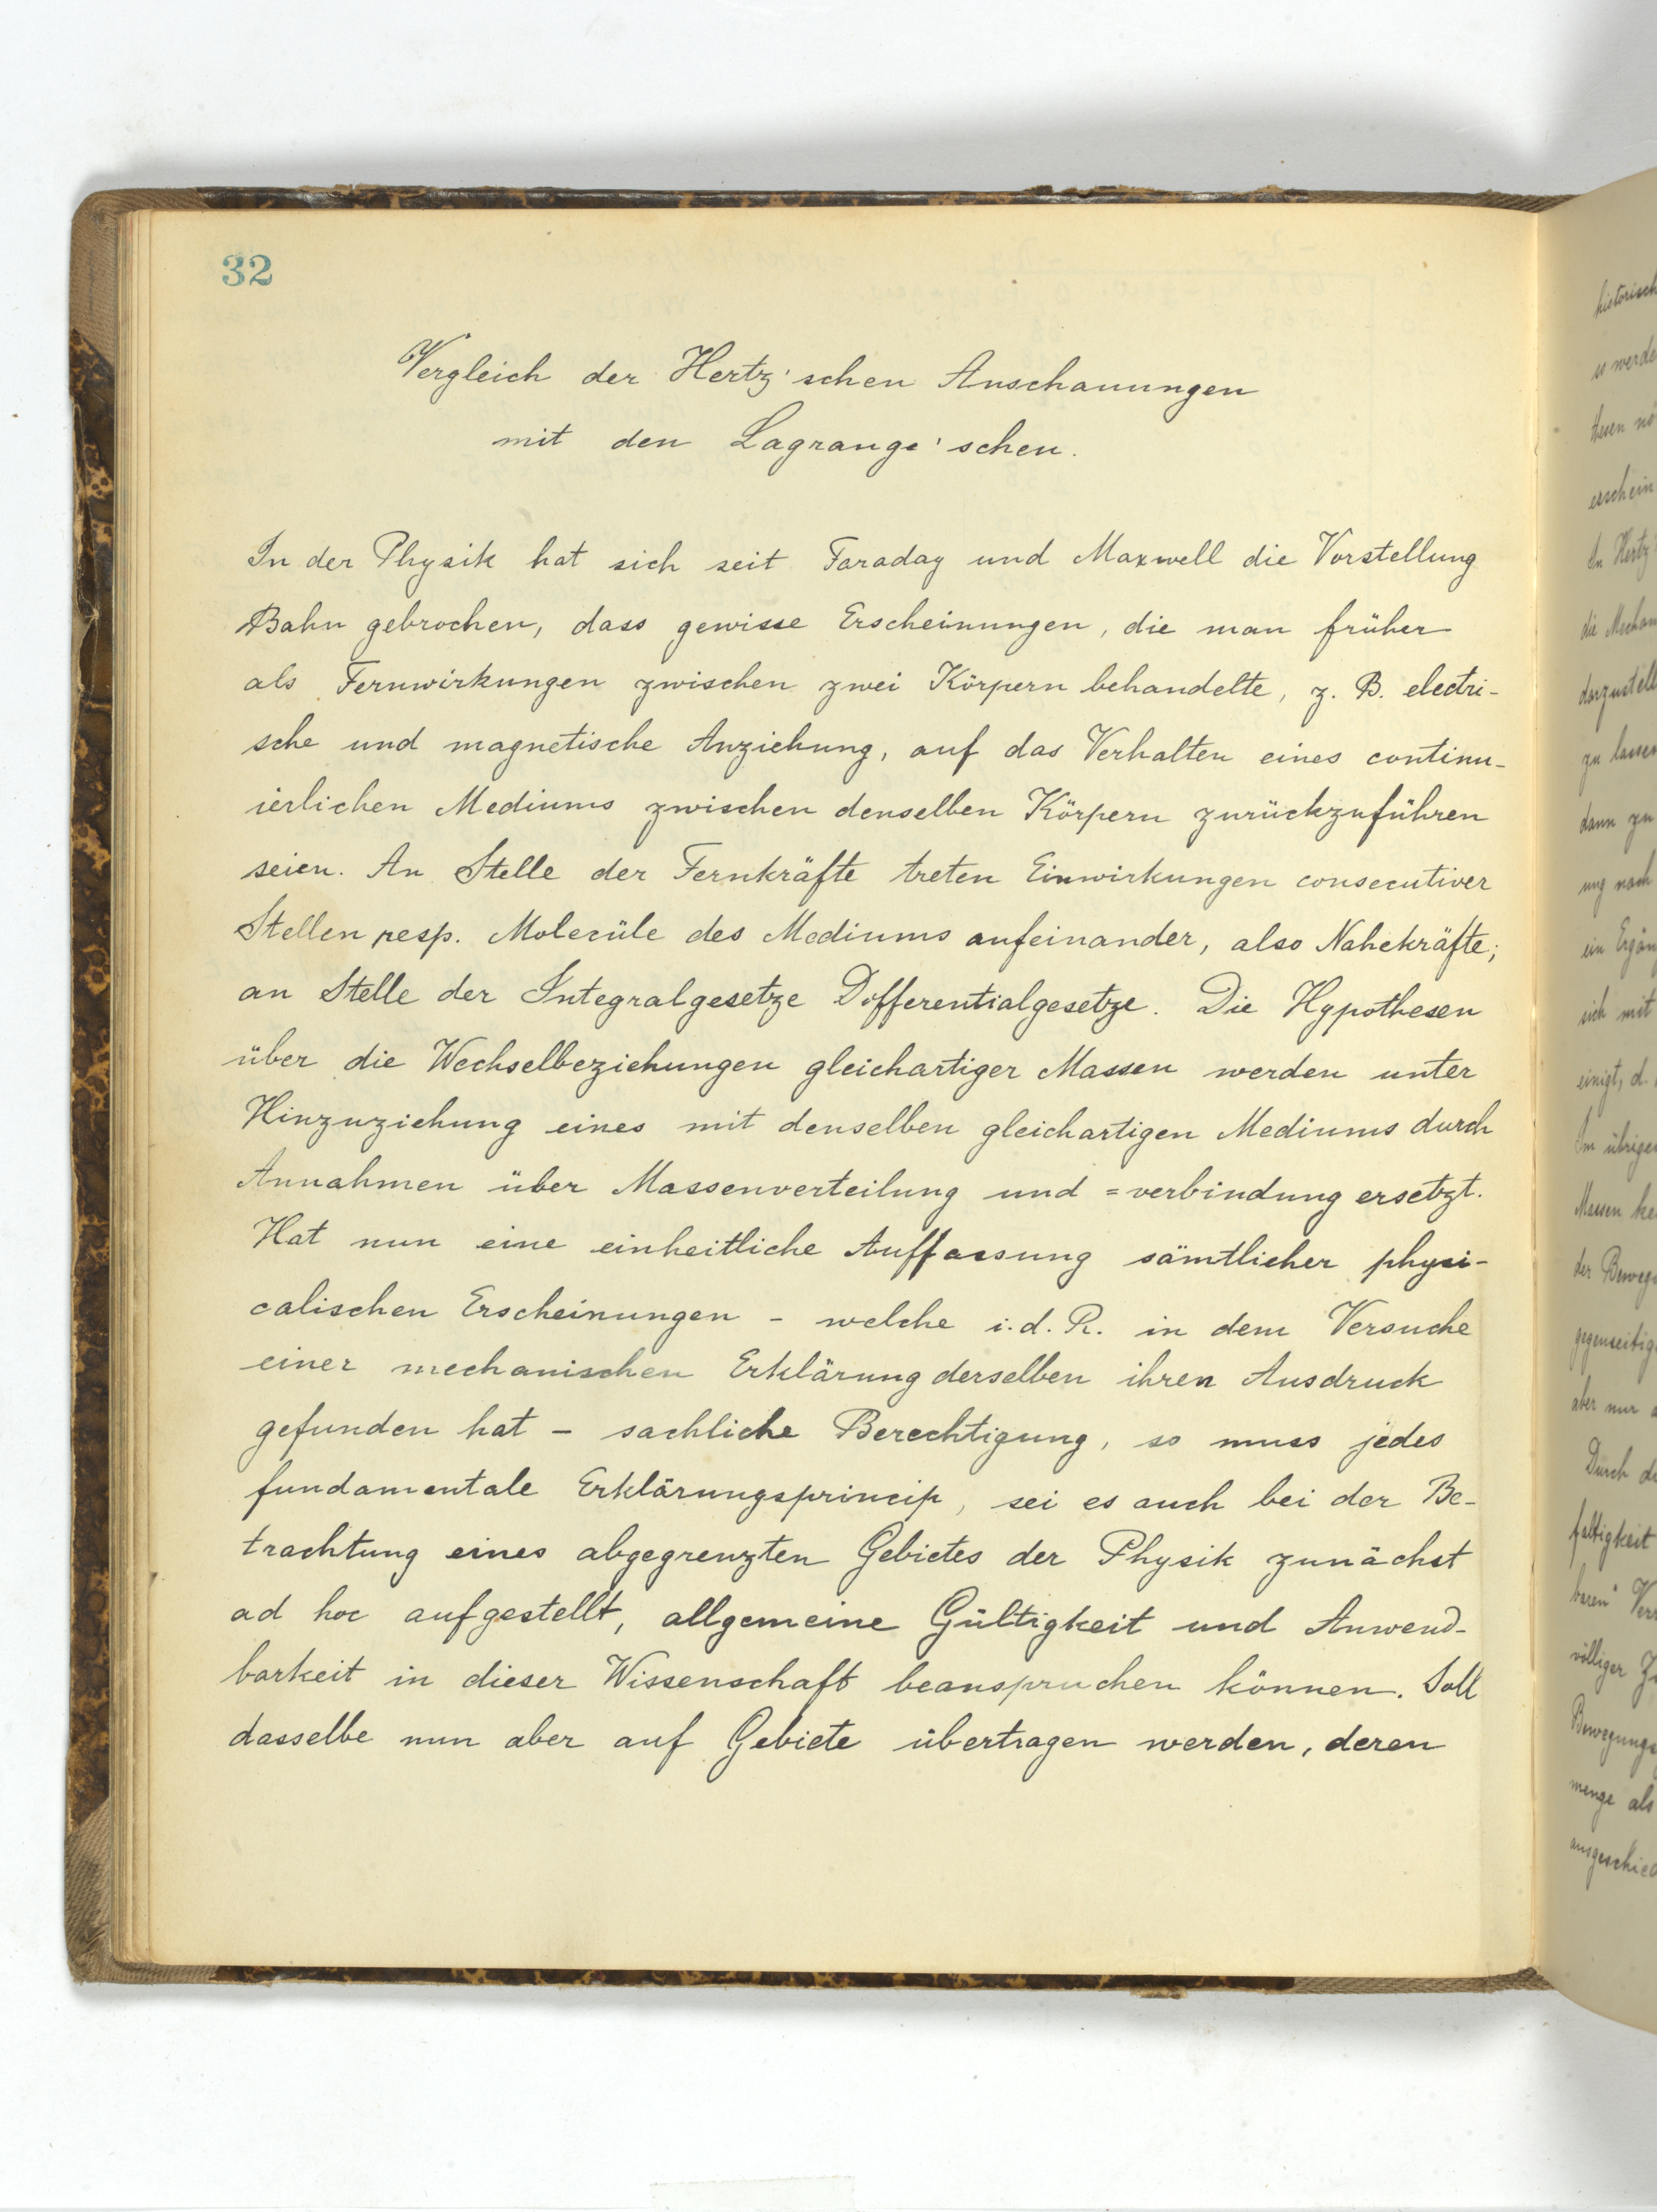 32
Vergleich der Hertz'schen Anschauungen
mit den Lagrange'schen.
In der Physik hat sich seit Faraday und Maxwell die Vorstellung
Bahn gebrochen, dass gewisse Erscheinungen, die man früher
als Fernwirkungen zwischen zwei Körpern behandelte, z. B. electri-
sche und magnetische Anziehung, auf das Verhalten eines continu-
ierlichen Mediums zwischen denselben Körpern zurückzuführen
seien. An Stelle der Fernkräfte treten Einwirkungen consecutiver
Stellen resp. Molecüle des Mediums aufeinander, also Nahekräfte;
an Stelle der Integralgesetze Differentialgesetze. Die Hypothesen
über die Wechselbeziehungen gleichartiger Massen werden unter
Hinzuziehung eines mit denselben gleichartigen Mediums durch
Annahmen über Massenverteilung und =verbindung ersetzt.
Hat nun eine einheitliche Auffassung sämtlicher physi-
calischen Erscheinungen - welche i. d. R. in dem Versuche
einer mechanischen Erklärung derselben ihren Ausdruck
gefunden hat - sachliche Berechtigung, so muss jedes
fundamentale Erklärungsprincip, sei es auch bei der Be-
trachtung eines abgegrenzten Gebietes der Physik zunächst
ad hoc aufgestellt, allgemeine Gültigkeit und Anwend-
barkeit in dieser Wissenschaft beanspruchen können. Soll
dasselbe nun aber auf Gebiete übertragen werden, deren